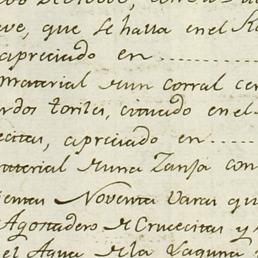 ve, que se halla en el R
apreciado en
material de un corral cer
dos toriles, cituado en el
ecitas, apreciado en
aterial de una Zanja con
ientas Noventa Varas qu
Agostadero de Crucecitas y
el Agua de la Laguna